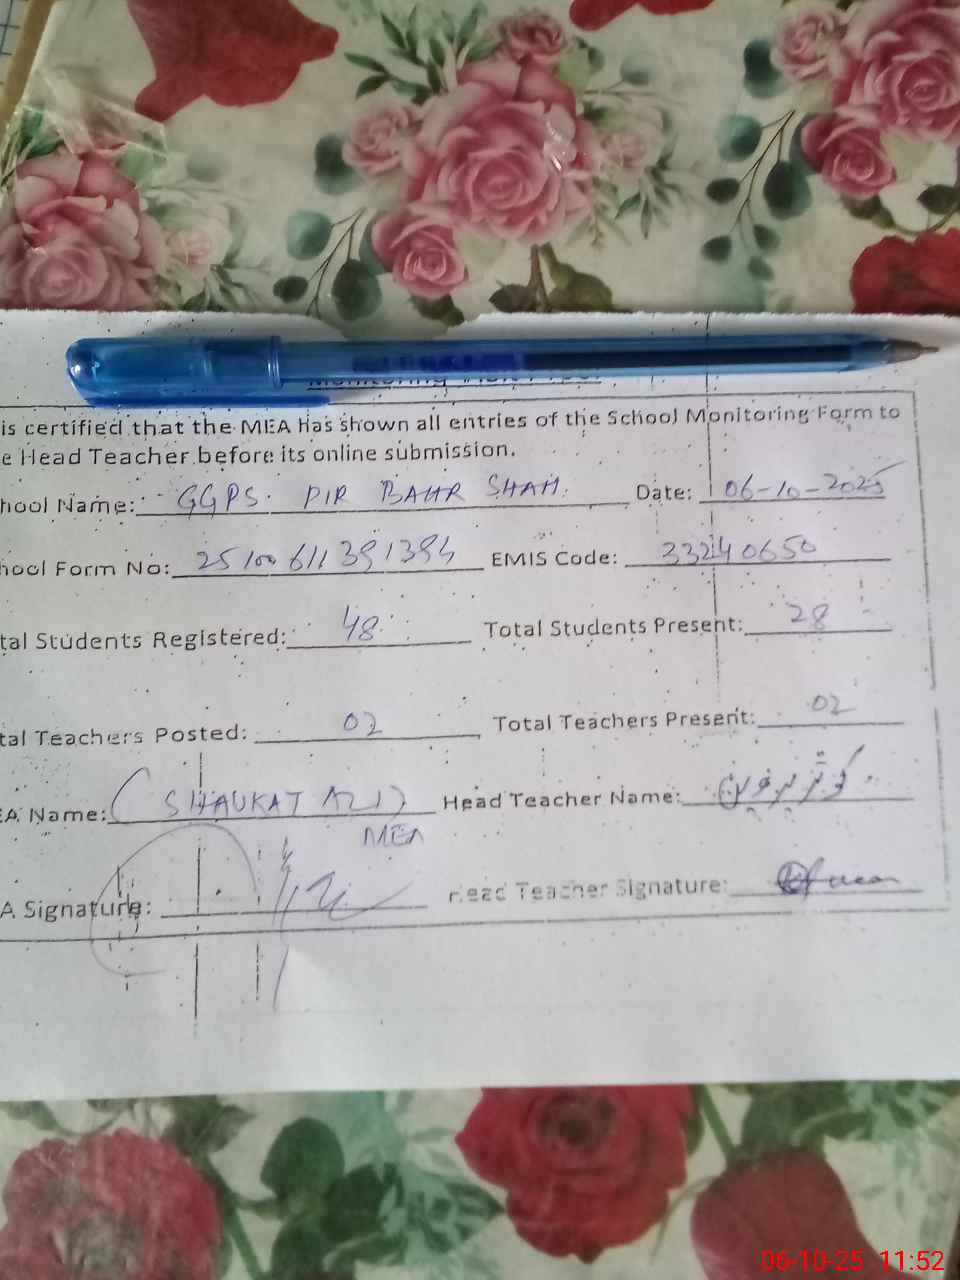 Monitoring Visit Proof
is certified that the MEA has shown all entries of the School Monitoring Form to
e Head Teacher before its online submission.
hool Name: GGPS. PIR BAHR SHAH. Date: 06-10-2025
hool Form No: 25100611391394 EMIS Code: 33240650
tal Students Registered: 48 Total Students Present: 28
tal Teachers Posted: 02 Total Teachers Present: 02
EA Name: (SHAUKAT ALI) Head Teacher Name: کوثر پروین
MEA
A Signature: Head Teacher Signature:
06-10-25 11:52